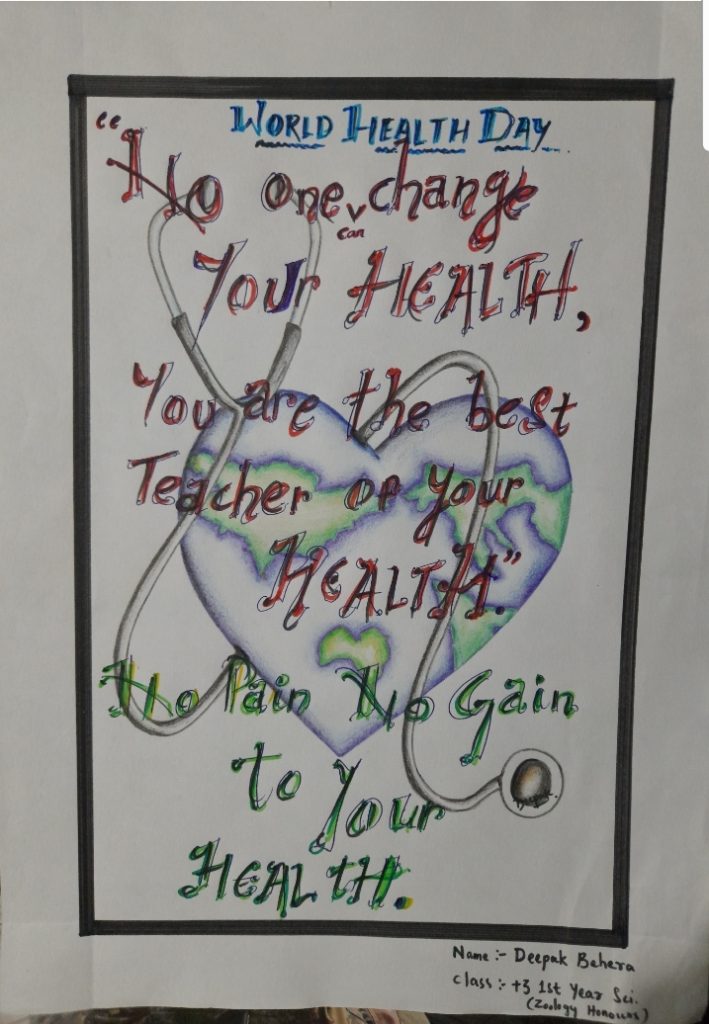 World Health Day
"No one can change
Your HEALTH,
You are the best
Teacher of your
HEALTH."
No Pain No Gain
to your
HEALTH.
Name :- Deepak Behera
Class :- +3 1st Year Sci.
(Zoology Honours)